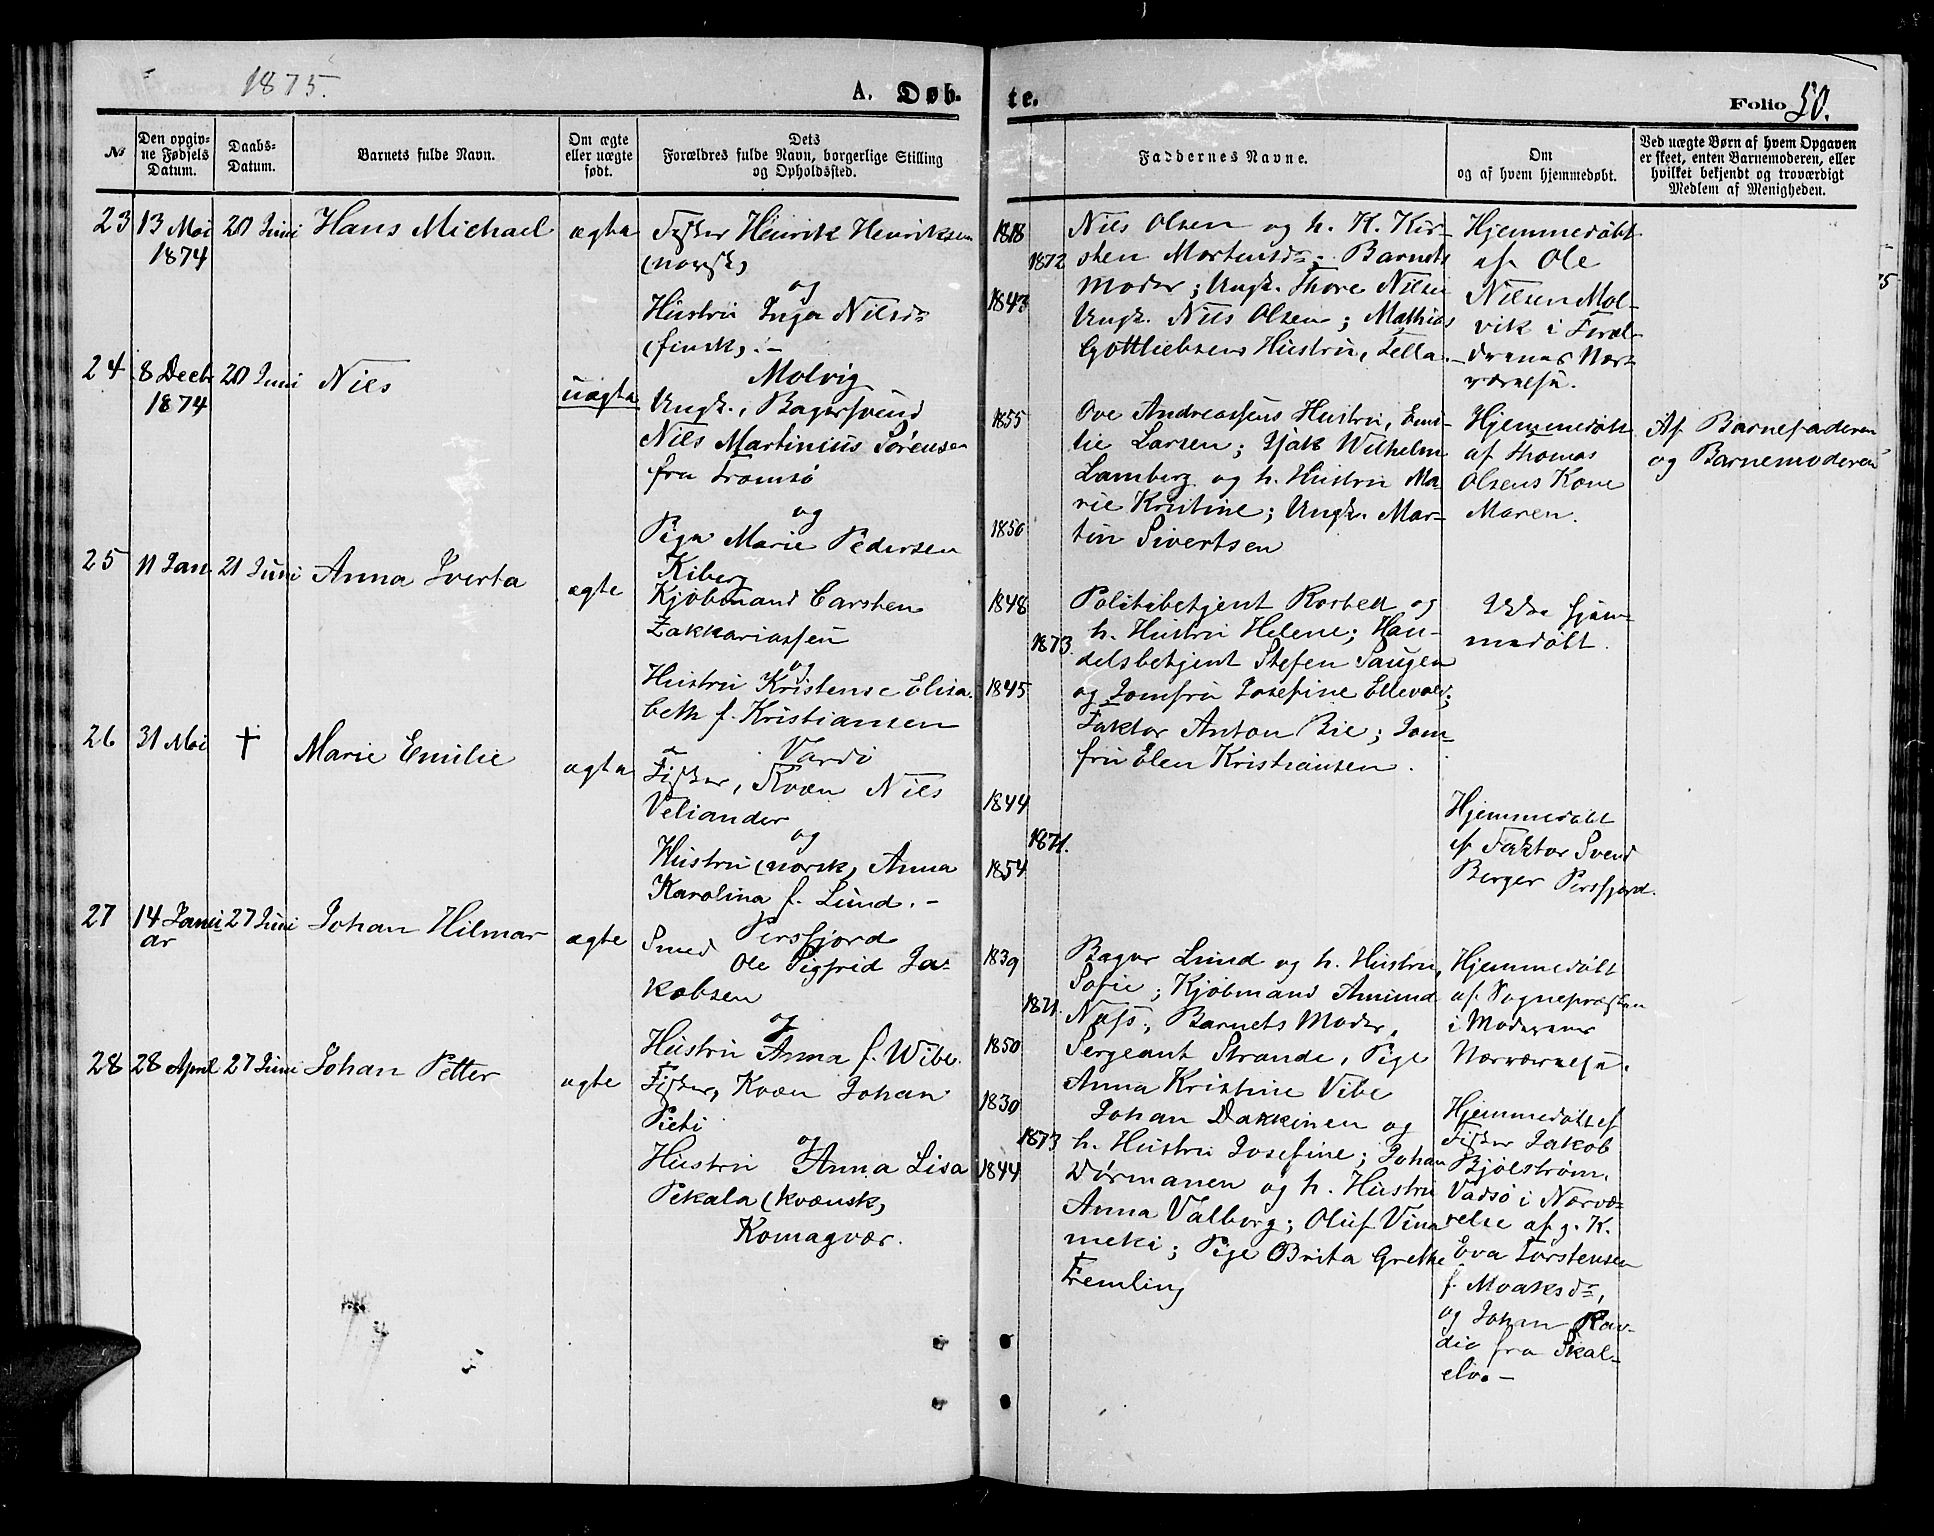 1875.
A. Døb-
te.
Folio 50.
№
Den opgiv-
ne Fødsels
Datum.
Daabs-
Datum.
Barnets fulde Navn.
Om ægte
eller uægte
født.
Dets
Forældres fulde Navn, borgerlige Stilling
og Opholdssted.
Faddernes Navne.
Om
og af hvem hjemmedøbt.
Ved uægte Børn af hvem Opgaven
er skeet, enten Barnemoderen, eller
hvilket bekjendt og troværdigt
Medlem af Menigheden.
23
13 Mai
1874
20 Juni
Hans Michael
ægte
Fisker Henrik Henriksen
(norsk)
og
Hustru Inga Nilsdr
(finsk). -
Molvig
1818
1872
1843
Nils Olsen og h. K. Kir-
sten Mortensdr; Barnets
Moder; Ungk. Thore Nilsen
Ungk. Nils Olsen; Mathias
Gottliebsens Hustru, Tella.
Hjemmedøbt
af Ole
Nilsen Mol-
vik i Foræl-
drenes Nær-
værelse.
24
8 Decb
1874
20 Juni
Nils
uægte
Ungk., Bagersvend
Nils Martinius Sörensen
fra Tromsö
og
Pige Marie Pedersen
Kiberg
1855
1850
Ove Andreassens Hustru, Emi-
lie Larsen; Isak Wilhelm
Lamberg og h. Hustru Ma-
rie Kristine; Ungk. Mar-
tin Sivertsen
Hjemmedøbt
af Thomas
Olsens Kone
Maren.
Af Barnefaderen
og Barnemoderen
25
11 Jan
21 Juni
Anna Iverta
ægte
Kjöbmand Carsten
Zakkariassen
og
Hustru Kristense Elisa-
beth f. Kristiansen
Vardö
1848
1873.
1845
Politibetjent Rosted og
h. Hustru Helene; Han-
delsbetjent Stefen Saugen
og Jomfru Josefine Ellevold;
Faktor Anton Bie; Jom-
fru Elen Kristiansen.
Ikke hjem-
medøbt.
26
31 Mai
†
Marie Emilie
ægte
Fisker, Kvæn Nils
Veliander
og
Hustru (norsk) Anna
Karolina f. Lund. -
Persfjord
1844
1871.
1854
Hjemmedøbt
af Faktor Svend
Berger Persfjord.
27
14 Janu-
ar
27 Juni
Johan Hilmar
ægte
Smed
Ole Sigfrid Ja-
kobsen
og
Hustru Anna f. Wibe.
1839
1871.
1850
Bager Lund og h. Hustru,
Sofie; Kjöbmand Amund
Næss; Barnets Moder,
Sergeant Strande, Pige
Anna Kristine Vibe
Hjemmedøbt
af Sognepræsten
i Moderens
Nærværelse.
28
28 April
27 Juni
Johan Petter
ægte
Fisker, Kvæn Johan
Pieti
og
Hustru Anna Lisa
Pekala (kvænsk)
Komagvær.
1830
1873
1844
Johan Dakkinen og
h. Hustru Josefine; Johan
Dörmanen og h. Hustru
Anna Valborg; Oluf Vina-
meki; Pige Brita Grethe
Fremling
Hjemmedøbt af
Fisker Jakob
Bjölström,
Vadsö i Nærvæ-
relse af g. K.
Eva Torstensen
f. Moaksdr,
og Johan Rau-
dio fra Skal-
elv. -